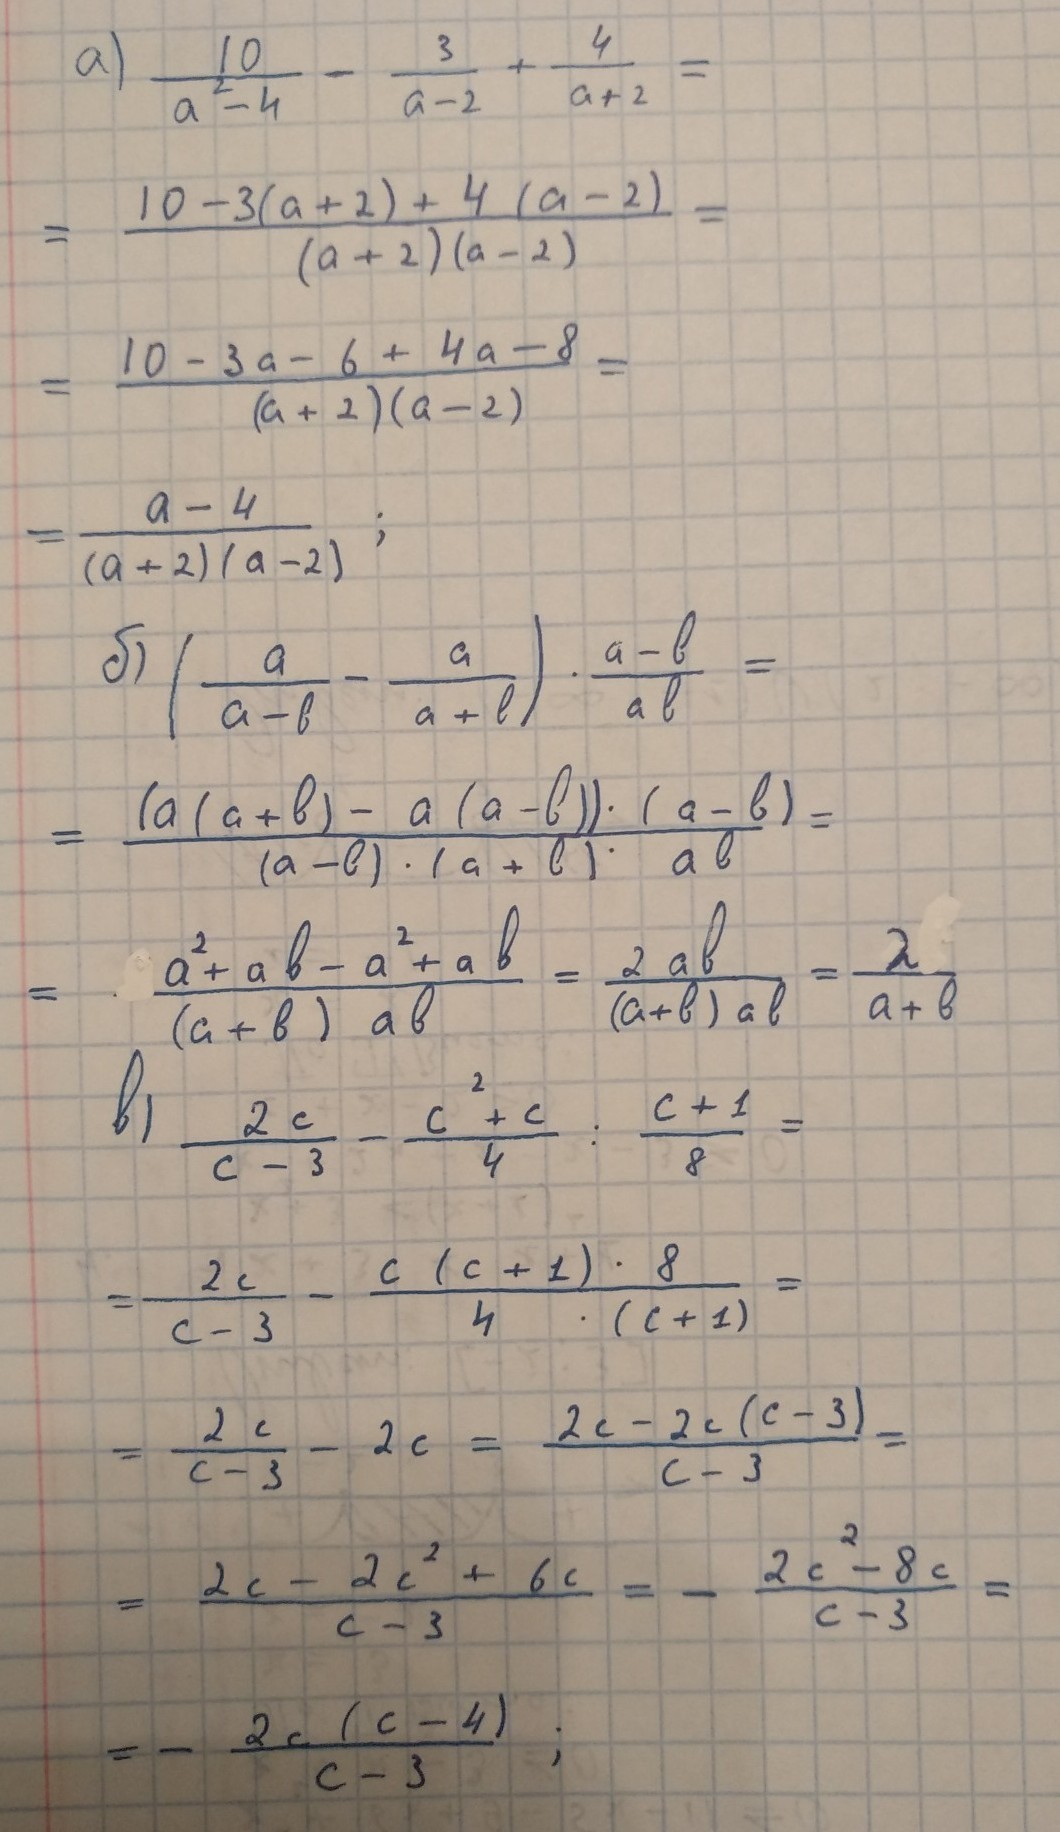 а) 10/(a²-4) - 3/(a-2) + 4/(a+2) =
= (10-3(a+2)+4(a-2))/((a+2)(a-2)) =
= (10-3a-6+4a-8)/((a+2)(a-2)) =
= (a-4)/((a+2)(a-2)) ;
б) (a/(a-b) - a/(a+b)) · (a-b)/(ab) =
= ((a(a+b)-a(a-b))·(a-b))/((a-b)·(a+b)·ab) =
= (a²+ab-a²+ab)/((a+b)ab) = 2ab/((a+b)ab) = 2/(a+b)
в) 2c/(c-3) - (c²+c)/4 : (c+1)/8 =
= 2c/(c-3) - (c(c+1)·8)/(4·(c+1)) =
= 2c/(c-3) - 2c = (2c-2c(c-3))/(c-3) =
= (2c-2c²+6c)/(c-3) = - (2c²-8c)/(c-3) =
= - (2c(c-4))/(c-3) ;